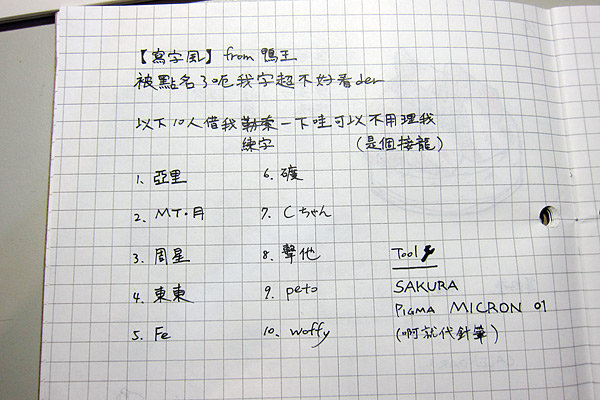 【寫字風】from 鴨王
被點名了呃我字超不好看der
以下10人借我勒索一下哇可以不用理我
練字
(是個接龍)
1. 亞里
2. MT.月
3. 周星
4. 東東
5. Fe
6. 礦
7. Cちゃん
8. 擊他
9. peto
10. woffy
Tool
SAKURA
PIGMA MICRON 01
(啊就代針筆)